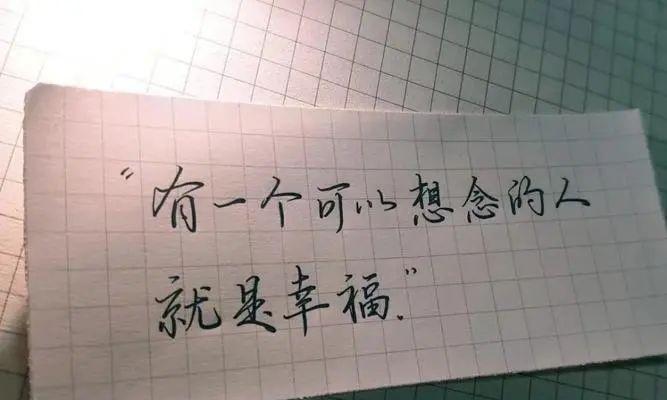 “有一个可以想念的人
就是幸福.”